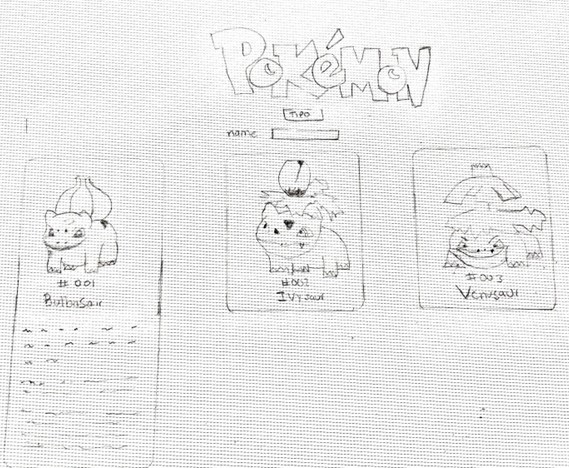 Pokémon
TIPO
name
#001
Bulbasaur
#002
Ivysaur
#003
Venusaur